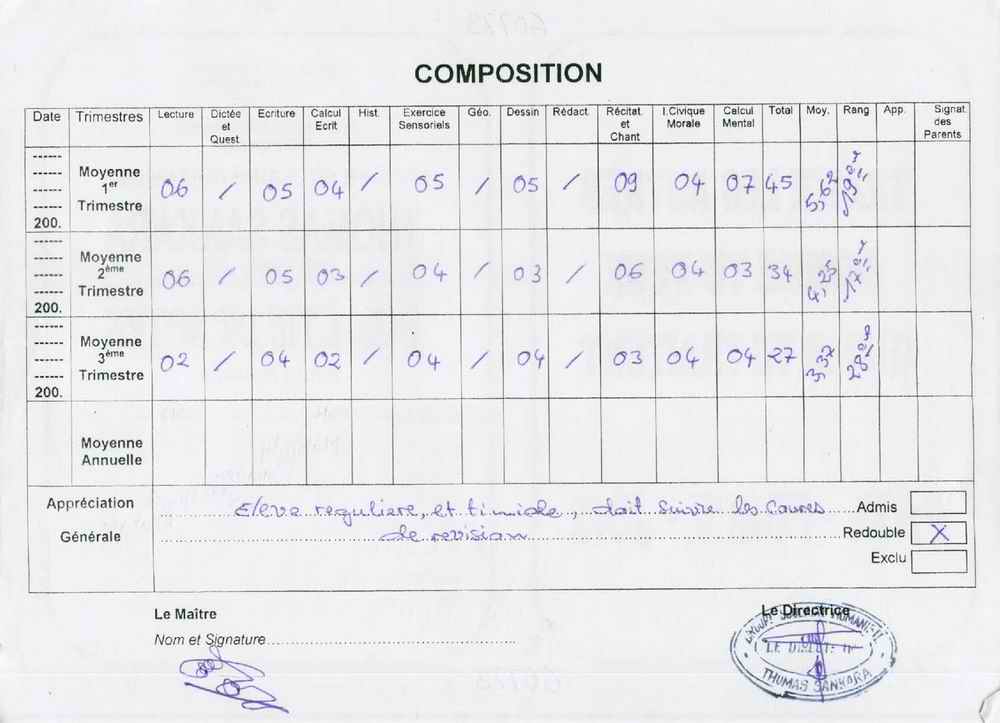 COMPOSITION
Date Trimestres Lecture Dictée et Quest Ecriture Calcul Ecrit Hist. Exercice Sensoriels Géo. Dessin Rédact. Récitat. et Chant I.Civique Morale Calcul Mental Total Moy. Rang App. Signat. des Parents
200. Moyenne 1er Trimestre 06 / 05 04 / 05 / 05 / 09 04 07 45 5,62 19è
200. Moyenne 2ème Trimestre 06 / 05 03 / 04 / 03 / 06 04 03 34 4,25 17è
200. Moyenne 3ème Trimestre 02 / 04 02 / 04 / 04 / 03 04 04 27 3,37 28è
Moyenne Annuelle
Appréciation Générale
Elève reguliere, et timide, doit suivre les Coures
de revision
Admis
Redouble X
Exclu
Le Maître
Nom et Signature
Le Directrice
THOMAS SANKARA